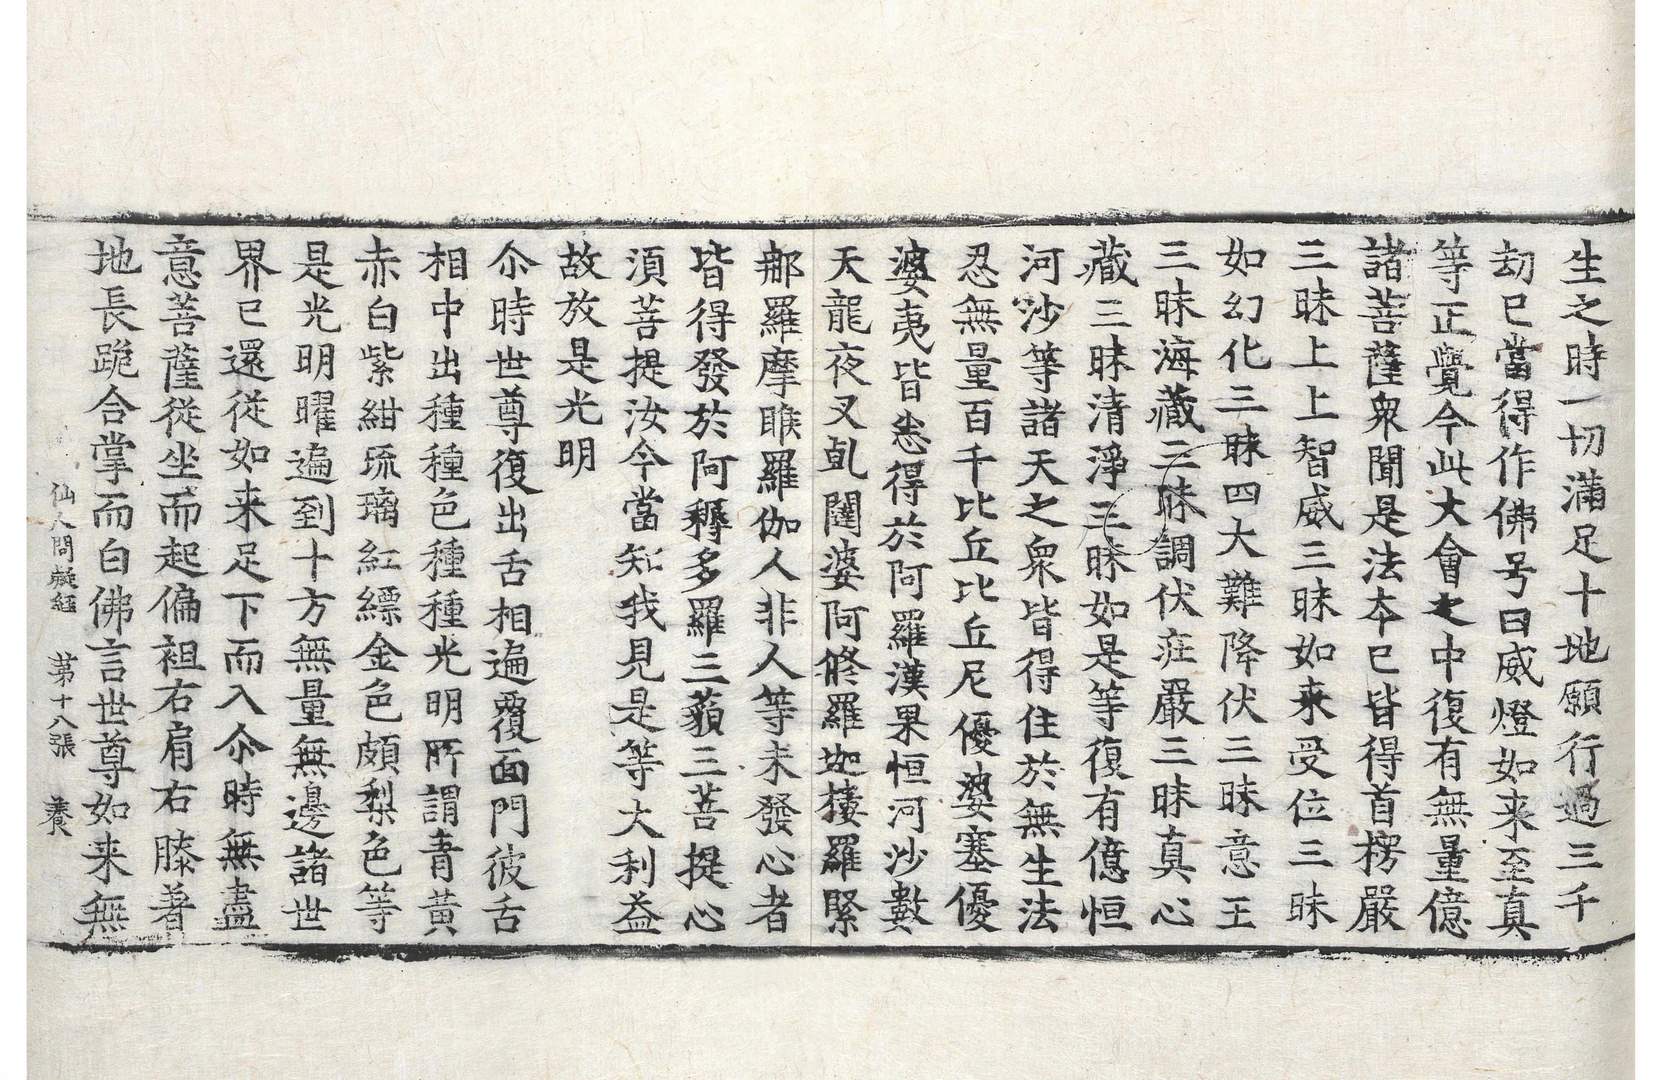 生之時一切滿足十地願行過三千
劫已當得作佛号曰威燈如来至真
等正覺今此大會之中復有無量億
諸菩薩衆聞是法本已皆得首楞嚴
三昧上上智威三昧如来受位三昧
如幻化三昧四大難降伏三昧意王
三昧海藏三昧調伏疰嚴三昧真心
藏三昧清淨三昧如是等復有億恒
河沙等諸天之衆皆得住於無生法
忍無量百千比丘比丘尼優婆塞優
婆夷皆悉得於阿羅漢果恒河沙數
天龍夜叉乹闥婆阿脩羅迦樓羅緊
那羅摩睺羅伽人非人等未發心者
皆得發於阿耨多羅三藐三菩提心
湏菩提汝今當知我見是等大利益
故放是光明
尒時世尊復出舌相遍覆面門彼舌
相中出種種色種種光明所謂青黃
赤白紫紺琉璃紅縹金色頗梨色等
是光明曜遍到十方無量無邊諸世
界已還從如来足下而入尒時無盡
意菩薩從坐而起偏袒右肩右膝著
地長跪合掌而白佛言世尊如来無
仙人問疑經 苐十八張 養